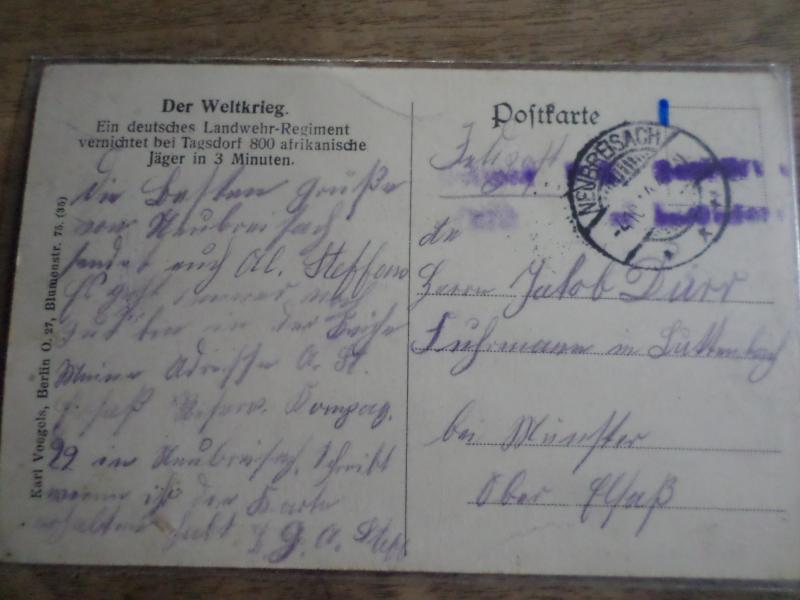 Der Weltkrieg.
Ein deutsches Landwehr-Regiment
vernichtet bei Tagsdorf 800 afrikanische
Jäger in 3 Minuten.
die besten Grüße
von Neubreisach
sendet euch Al. Steffan
Es geht immer noch
gut bin in der
Meine Adresse A. St.
Reserv. Kompag.
22 in Neubreisach. Schreibt
wenn ihr die Karte
erhalten habt
Karl Voegels, Berlin O. 27, Blumenstr. 75. (35)
Postkarte
Feldpost
NEUBREISACH
An
Herrn Jakob Dürr
Fuhrmann in Luttenbach
bei Münster
Ober Elsaß